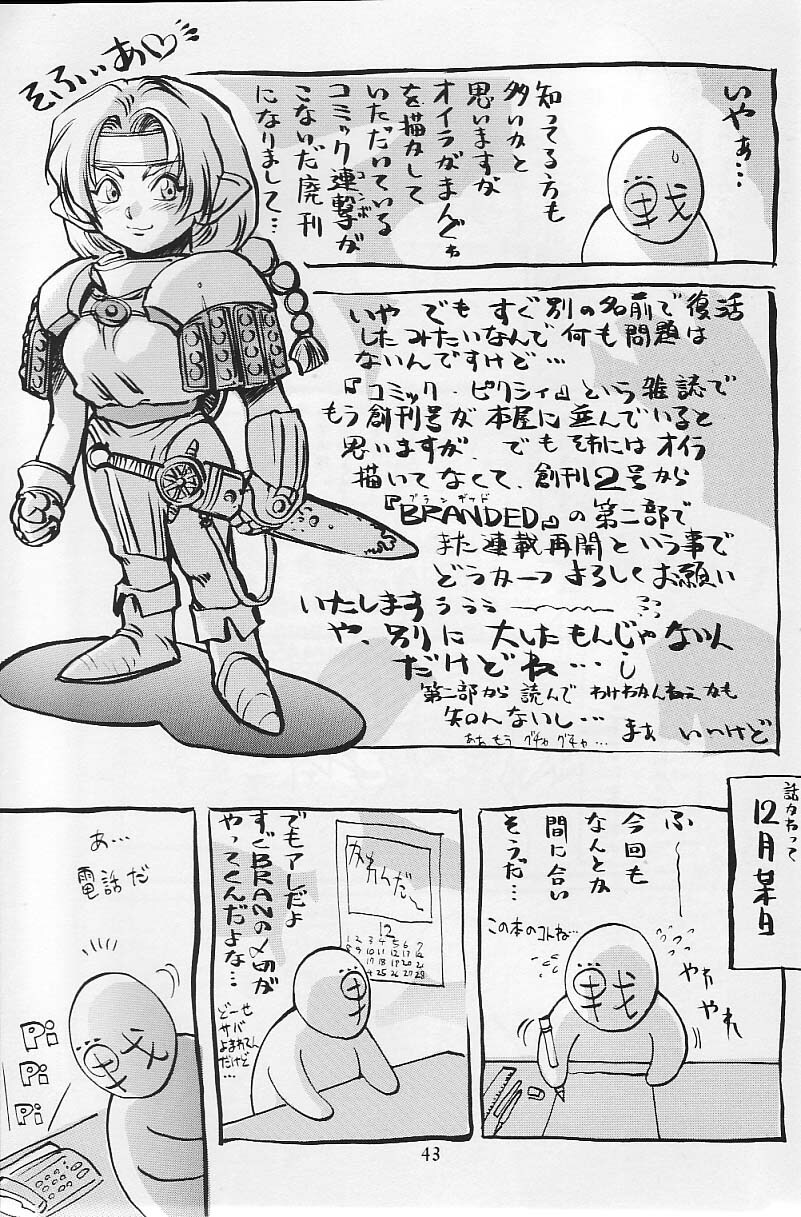 そふぃあ♡
いやぁ…
戦
知ってる方も
多いかと
思いますが
オイラがまんがぁ
を描かして
いただいている
コミック連撃が
コンボ
こないだ廃刊
になりまして…
いや でも すぐ別の名前で復活
したみたいなんで何も問題は
ないんですけど…
『コミック・ピクシィ』という雑誌で
もう創刊号が本屋に並んでいると
思いますが、でもそれにはオイラ
描いてなくて、創刊2号から
『BRANDED』の第二部で
また連載再開という事で
どうか一つよろしくお願い
いたしますぅぅぅ
や、別に大したもんじゃないん
だけどね…
第二部から読んで わけわかんねぇかも
知んないし… まぁ いいけど
ああもうグチャグチャ…
話かわって
12月某日
ふ〜
今回も
なんとか
間に合い
そうだ…
この本のコトね…
やれ
やれ
戦
12
でもアレだよ
すぐBRANの〆切が
やってくんだよな…
どーせ
サバ
よまれてん
だけど
…
戦
あ…
電話だ
Pi
Pi
Pi
戦
43